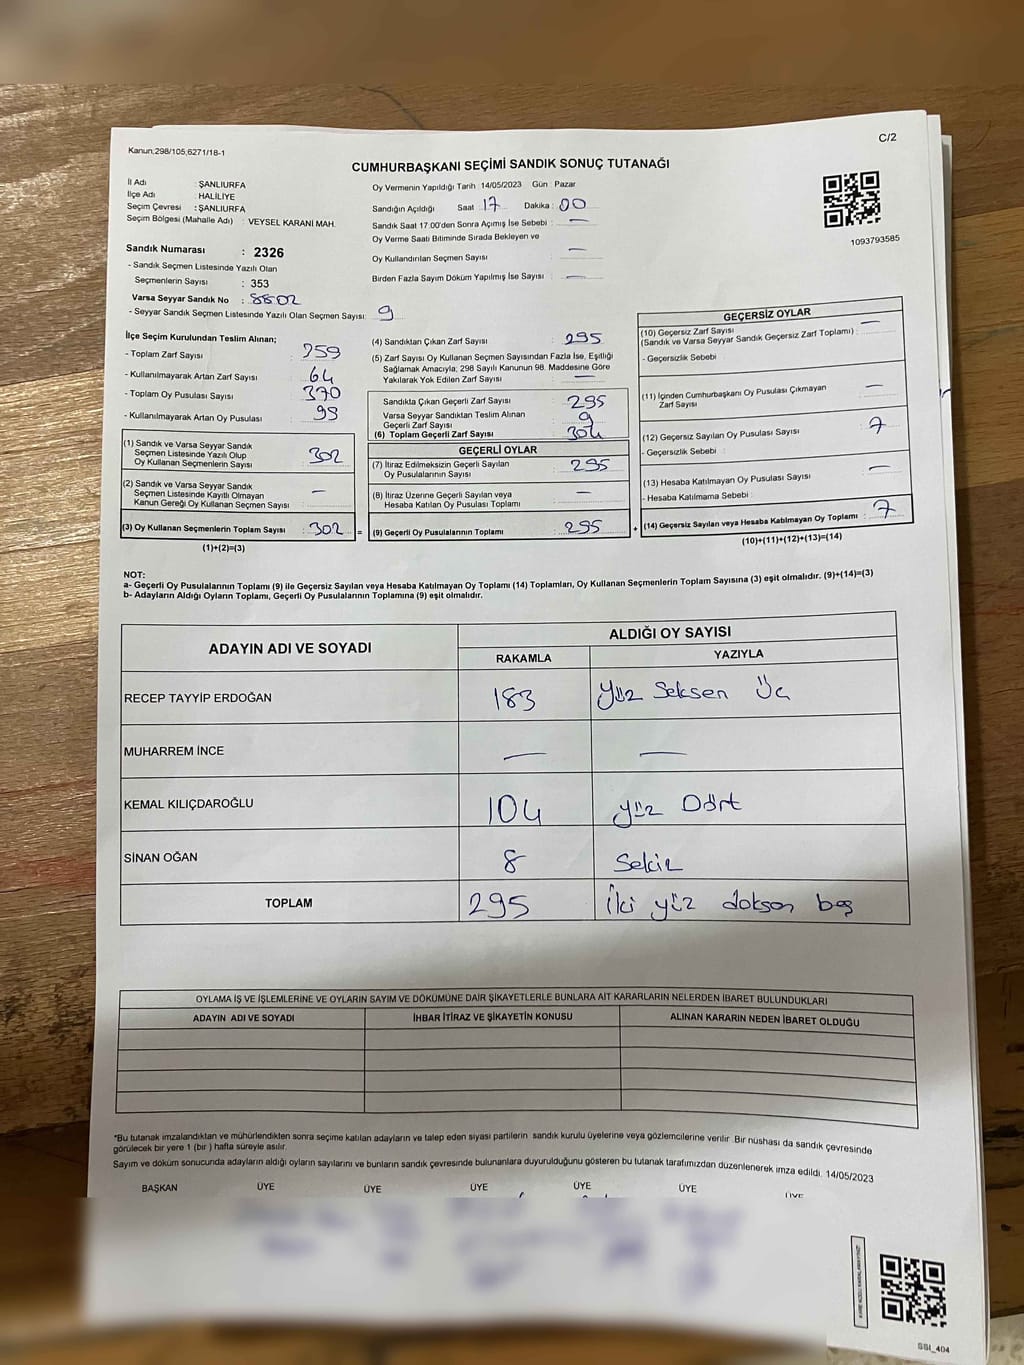 C/2
Kanun;298/105,6271/18-1
CUMHURBAŞKANI SEÇİMİ SANDIK SONUÇ TUTANAĞI
İl Adı : ŞANLIURFA
İlçe Adı : HALİLİYE
Seçim Çevresi : ŞANLIURFA
Seçim Bölgesi (Mahalle Adı) : VEYSEL KARANİ MAH.
Sandık Numarası : 2326
- Sandık Seçmen Listesinde Yazılı Olan
Seçmenlerin Sayısı : 353
Varsa Seyyar Sandık No : 8802
- Seyyar Sandık Seçmen Listesinde Yazılı Olan Seçmen Sayısı: 9
Oy Vermenin Yapıldığı Tarih :14/05/2023 Gün : Pazar
Sandığın Açıldığı Saat : 17 Dakika : 00
Sandık Saat 17.00'den Sonra Açımış İse Sebebi : —
Oy Verme Saati Bitiminde Sırada Bekleyen ve
Oy Kullandırılan Seçmen Sayısı : —
Birden Fazla Sayım Döküm Yapılmış İse Sayısı : —
1093793585
İlçe Seçim Kurulundan Teslim Alınan;
- Toplam Zarf Sayısı : 359
- Kullanılmayarak Artan Zarf Sayısı : 64
- Toplam Oy Pusulası Sayısı : 370
- Kullanılmayarak Artan Oy Pusulası :
(1) Sandık ve Varsa Seyyar Sandık
Seçmen Listesinde Yazılı Olup
Oy Kullanan Seçmenlerin Sayısı : 302
(2) Sandık ve Varsa Seyyar Sandık
Seçmen Listesinde Kayıtlı Olmayan
Kanun Gereği Oy Kullanan Seçmen Sayısı : —
(3) Oy Kullanan Seçmenlerin Toplam Sayısı : 302 =
(1)+(2)=(3)
(4) Sandıktan Çıkan Zarf Sayısı : 295
(5) Zarf Sayısı Oy Kullanan Seçmen Sayısından Fazla İse, Eşitliği
Sağlamak Amacıyla; 298 Sayılı Kanunun 98. Maddesine Göre
Yakılarak Yok Edilen Zarf Sayısı : —
Sandıkta Çıkan Geçerli Zarf Sayısı : 295
Varsa Seyyar Sandıktan Teslim Alınan
Geçerli Zarf Sayısı : 9
(6) Toplam Geçerli Zarf Sayısı : 304
GEÇERLİ OYLAR
(7) İtiraz Edilmeksizin Geçerli Sayılan
Oy Pusulalarının Sayısı : 295
(8) İtiraz Üzerine Geçerli Sayılan veya
Hesaba Katılan Oy Pusulası Toplamı : —
(9) Geçerli Oy Pusulalarının Toplamı : 295 +
GEÇERSİZ OYLAR
(10) Geçersiz Zarf Sayısı
(Sandık ve Varsa Seyyar Sandık Geçersiz Zarf Toplamı) : —
- Geçersizlik Sebebi :
(11) İçinden Cumhurbaşkanı Oy Pusulası Çıkmayan
Zarf Sayısı : —
(12) Geçersiz Sayılan Oy Pusulası Sayısı : 7
- Geçersizlik Sebebi :
(13) Hesaba Katılmayan Oy Pusulası Sayısı : —
- Hesaba Katılmama Sebebi :
(14) Geçersiz Sayılan veya Hesaba Katılmayan Oy Toplamı : 7
(10)+(11)+(12)+(13)=(14)
NOT:
a- Geçerli Oy Pusulalarının Toplamı (9) ile Geçersiz Sayılan veya Hesaba Katılmayan Oy Toplamı (14) Toplamları, Oy Kullanan Seçmenlerin Toplam Sayısına (3) eşit olmalıdır. (9)+(14)=(3)
b- Adayların Aldığı Oyların Toplamı, Geçerli Oy Pusulalarının Toplamına (9) eşit olmalıdır.
ADAYIN ADI VE SOYADI
ALDIĞI OY SAYISI
RAKAMLA YAZIYLA
RECEP TAYYİP ERDOĞAN 183 Yüz Seksen Üç
MUHARREM İNCE — —
KEMAL KILIÇDAROĞLU 104 Yüz Dört
SİNAN OĞAN 8 Sekiz
TOPLAM 295 İki yüz doksan beş
OYLAMA İŞ VE İŞLEMLERİNE VE OYLARIN SAYIM VE DÖKÜMÜNE DAİR ŞİKAYETLERLE BUNLARA AİT KARARLARIN NELERDEN İBARET BULUNDUKLARI
ADAYIN ADI VE SOYADI İHBAR İTİRAZ VE ŞİKAYETİN KONUSU ALINAN KARARIN NEDEN İBARET OLDUĞU
*Bu tutanak imzalandıktan ve mühürlendikten sonra seçime katılan adayların ve talep eden siyasi partilerin sandık kurulu üyelerine veya gözlemcilerine verilir .Bir nüshası da sandık çevresinde
görülecek bir yere 1 (bir ) hafta süreyle asılır.
Sayım ve döküm sonucunda adayların aldığı oyların sayılarını ve bunların sandık çevresinde bulunanlara duyurulduğunu gösteren bu tutanak tarafımızdan düzenlenerek imza edildi. 14/05/2023
BAŞKAN ÜYE ÜYE ÜYE ÜYE ÜYE ÜYE
SSI_404